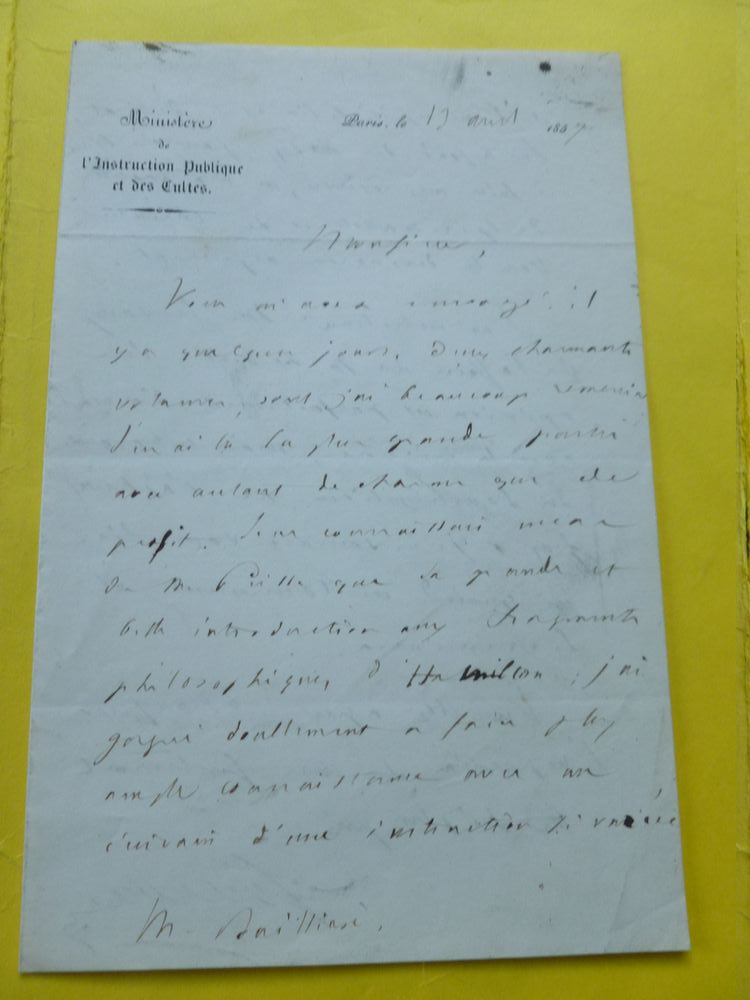 Ministère
de
l'Instruction Publique
et des Cultes.
Paris, le 13 avril 1867
Monsieur,
Vous m'avez envoyé, il
y a quelques jours, deux charmants
volumes, dont j'ai beaucoup
J'en ai lu la plus grande partie
avec autant de charme que de
profit. Je ne connaissais même
de M. Peisse que sa grande et
belle introduction aux Fragments
philosophiques d'Hamilton ; j'ai
gagné doublement à faire plus
ample connaissance avec un
écrivain d'une instruction si variée
M. Baillière.